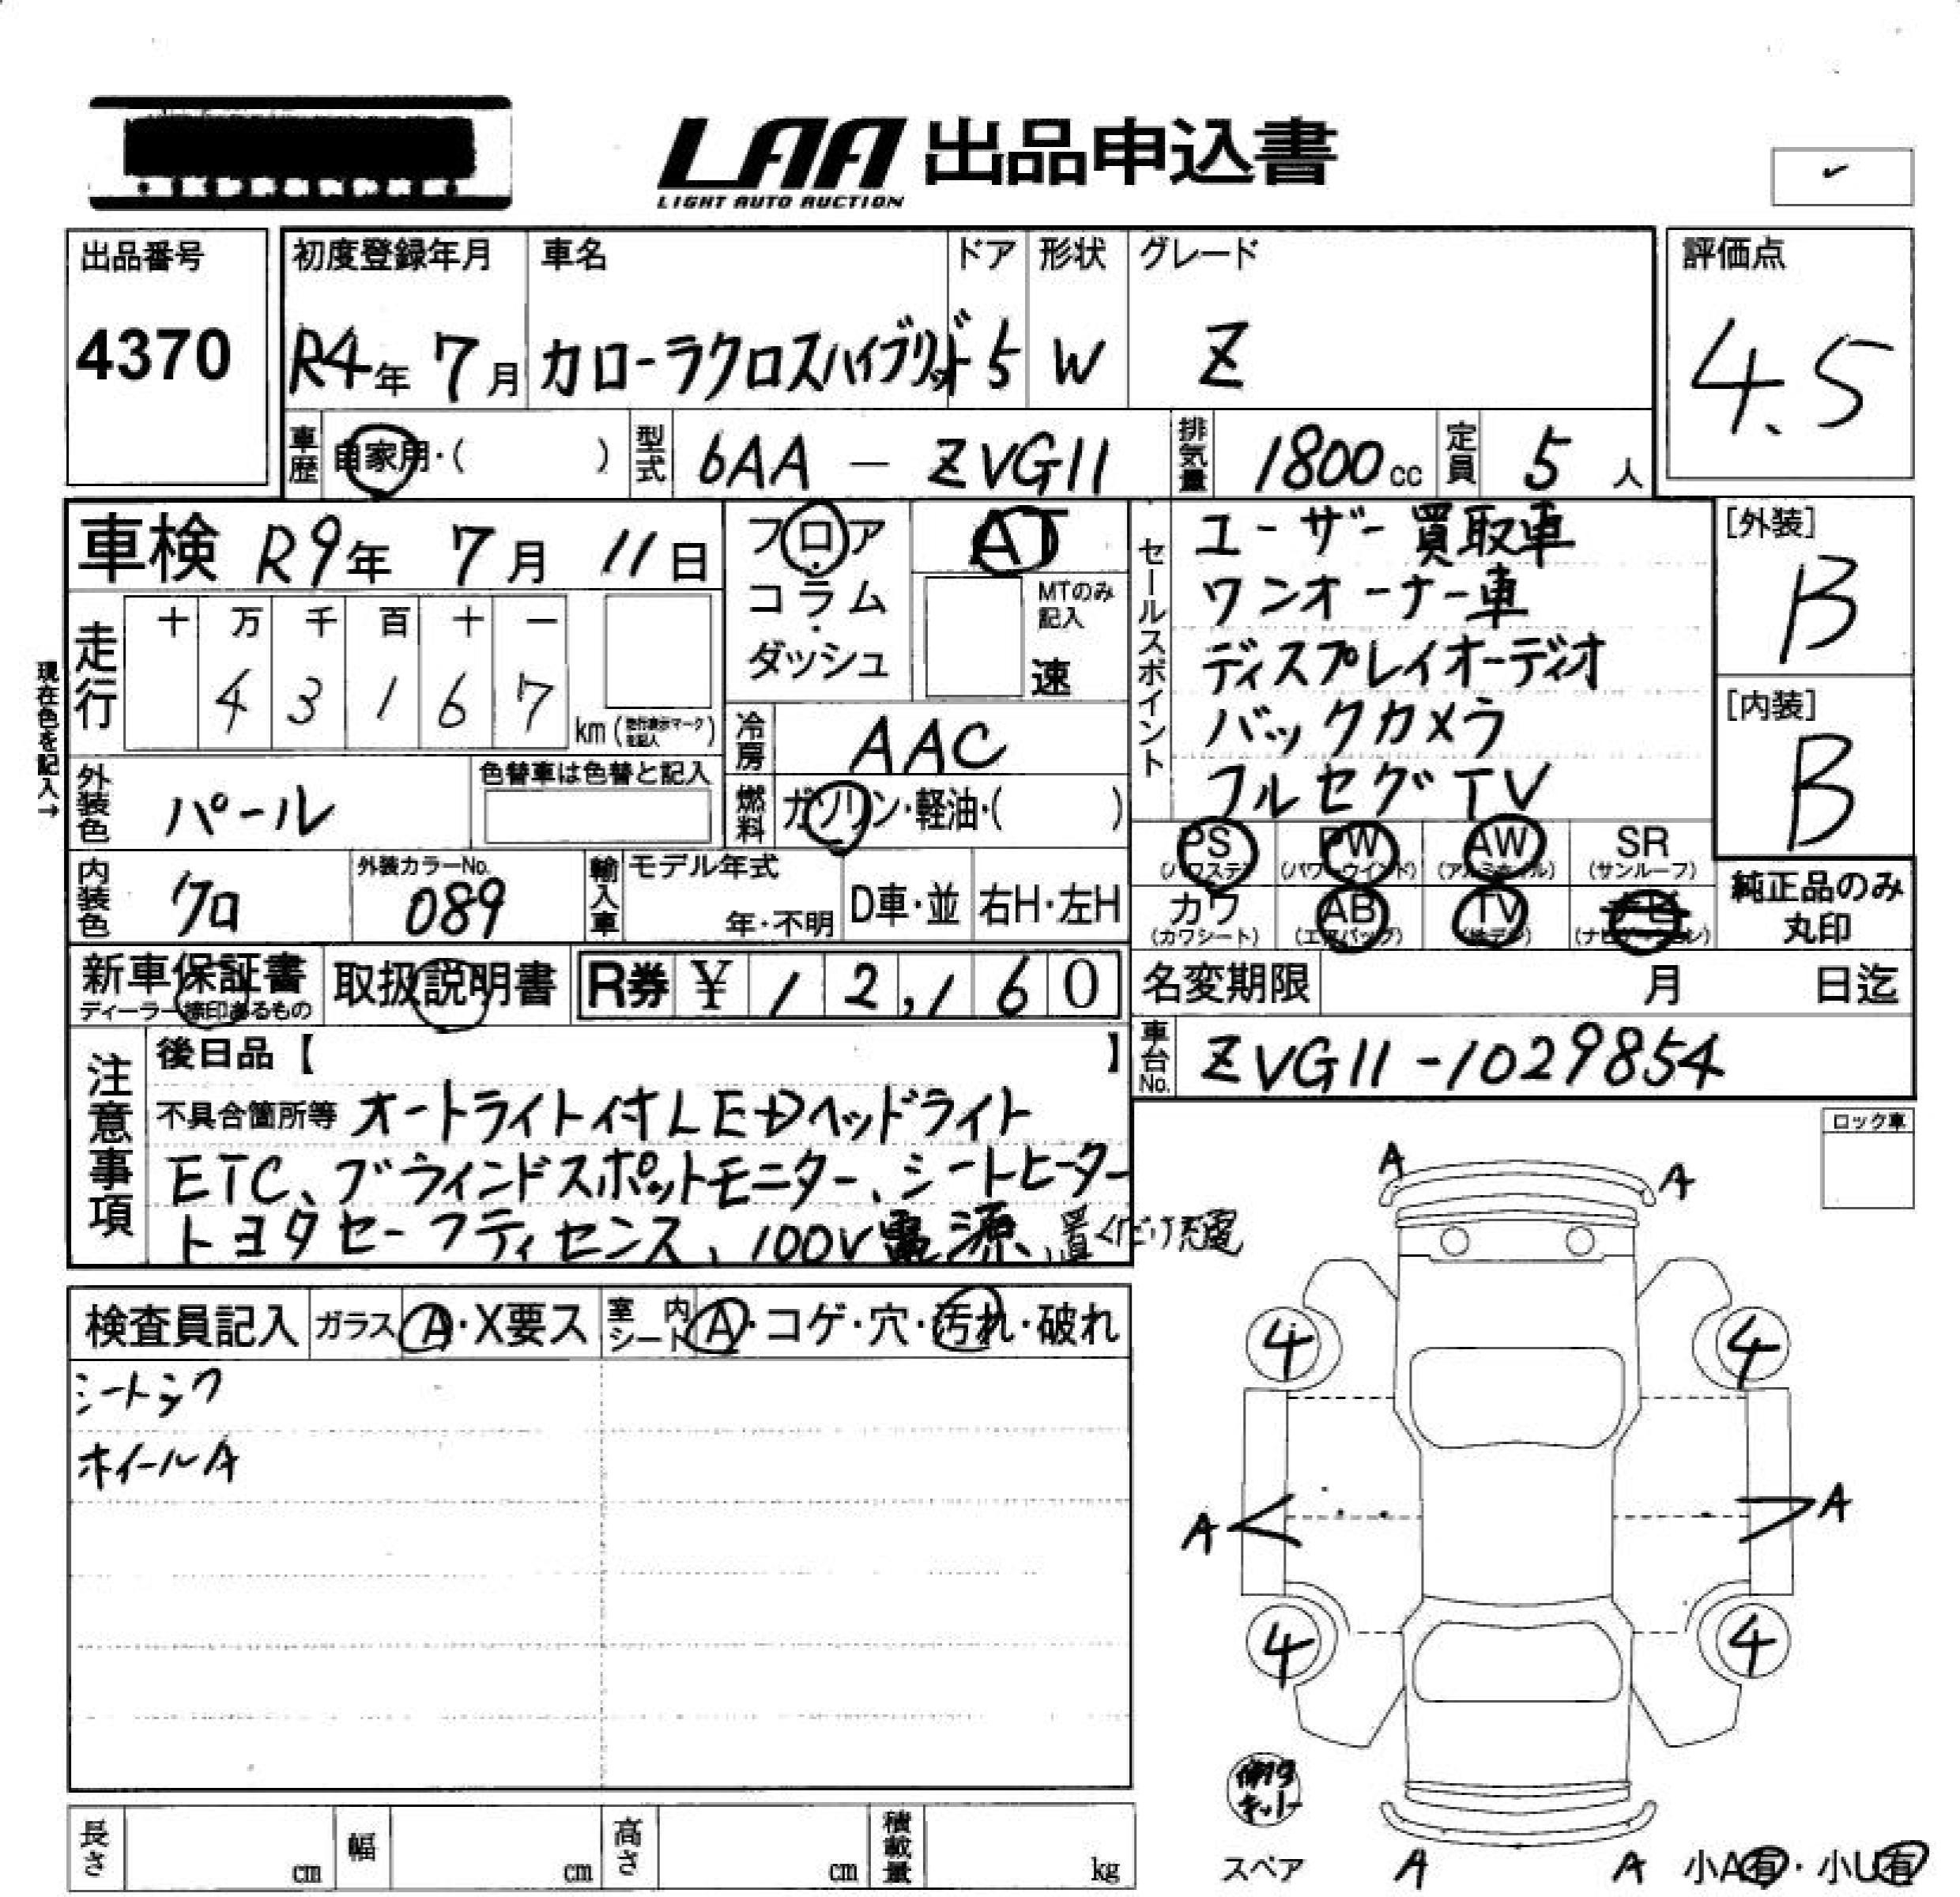 LAA 出品申込書
LIGHT AUTO AUCTION
✓
出品番号
4370
初度登録年月 車名 ドア 形状 グレード
R4年 7月 カローラクロスハイブリッド 5 W Z
評価点
4.5
車歴 自家用・( ) 型式 6AA - ZVG11 排気量 1800cc 定員 5人
車検 R9年 7月 11日
フロア・コラム・ダッシュ
AT
MTのみ記入
速
セールスポイント
ユーザー買取車
ワンオーナー車
ディスプレイオーディオ
バックカメラ
フルセグTV
[外装]
B
[内装]
B
現在色を記入→
走行 十 万 千 百 十 一
4 3 1 6 7 km
冷房 AAC
外装色 パール 色替車は色替と記入
燃料 ガソリン・軽油・( )
PS (パワステ) PW (パワーウインド) AW (アルミホイル) SR (サンルーフ)
カワ (カワシート) AB (エアバッグ) TV (地デジ) (ナビゲーション)
純正品のみ丸印
内装色 クロ 外装カラーNo. 089 輸入車 モデル年式 年・不明 D車・並 右H・左H
新車保証書 ディーラー捺印あるもの 取扱説明書 R券 ¥ 12,160
名変期限 月 日迄
車台No. ZVG11-1029854
注意事項
後日品【 】
不具合箇所等 オートライト付LEDヘッドライト
ETC、ブラインドスポットモニター、シートヒーター
トヨタセーフティセンス、100V電源、置くだけ充電
ロック車
検査員記入 ガラス A・X要ス 室内シート A・コゲ・穴・汚れ・破れ
シートシワ
ホイールA
A A
4 4
A A
4 4
修理キット
スペア
A A
小A有・小U有
長さ cm 幅 cm 高さ cm 積載量 kg